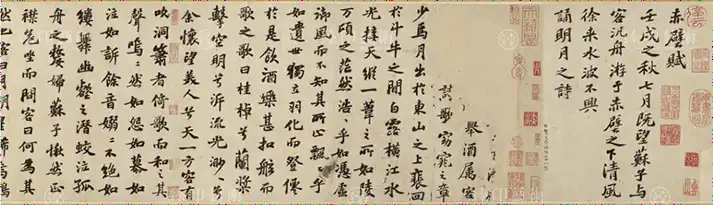 赤壁賦
壬戌之秋七月既望蘇子與
客汎舟游于赤壁之下清風
徐来水波不興
舉酒屬客
誦明月之詩
歌窈窕之章
少焉月出於東山之上裵回
於斗牛之間白露横江水
光接天縱一葦之所如陵
万頃之茫然浩〻乎如馮虚
御風而不知其所止飄〻乎
如遺世獨立羽化而登僊
於是飲酒樂甚扣舷而
歌之歌曰桂棹兮蘭槳
擊空明兮泝流光渺〻兮
余懷望美人兮天一方客有
吹洞簫者倚歌而和之其
聲嗚〻然如怨如慕如
泣如訴餘音嫋〻不絶如
縷舞幽壑之潛蛟泣孤
舟之嫠婦蘇子愀然正
襟危坐而問客曰何為其
然也客曰月明星稀烏鵲